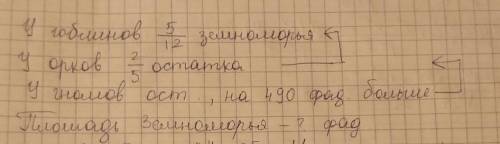 У гоблинов 5/12 земноморья
У орков 2/5 остатка
У гномов ост., на 490 фад больше
Площадь Земноморья - ? фад